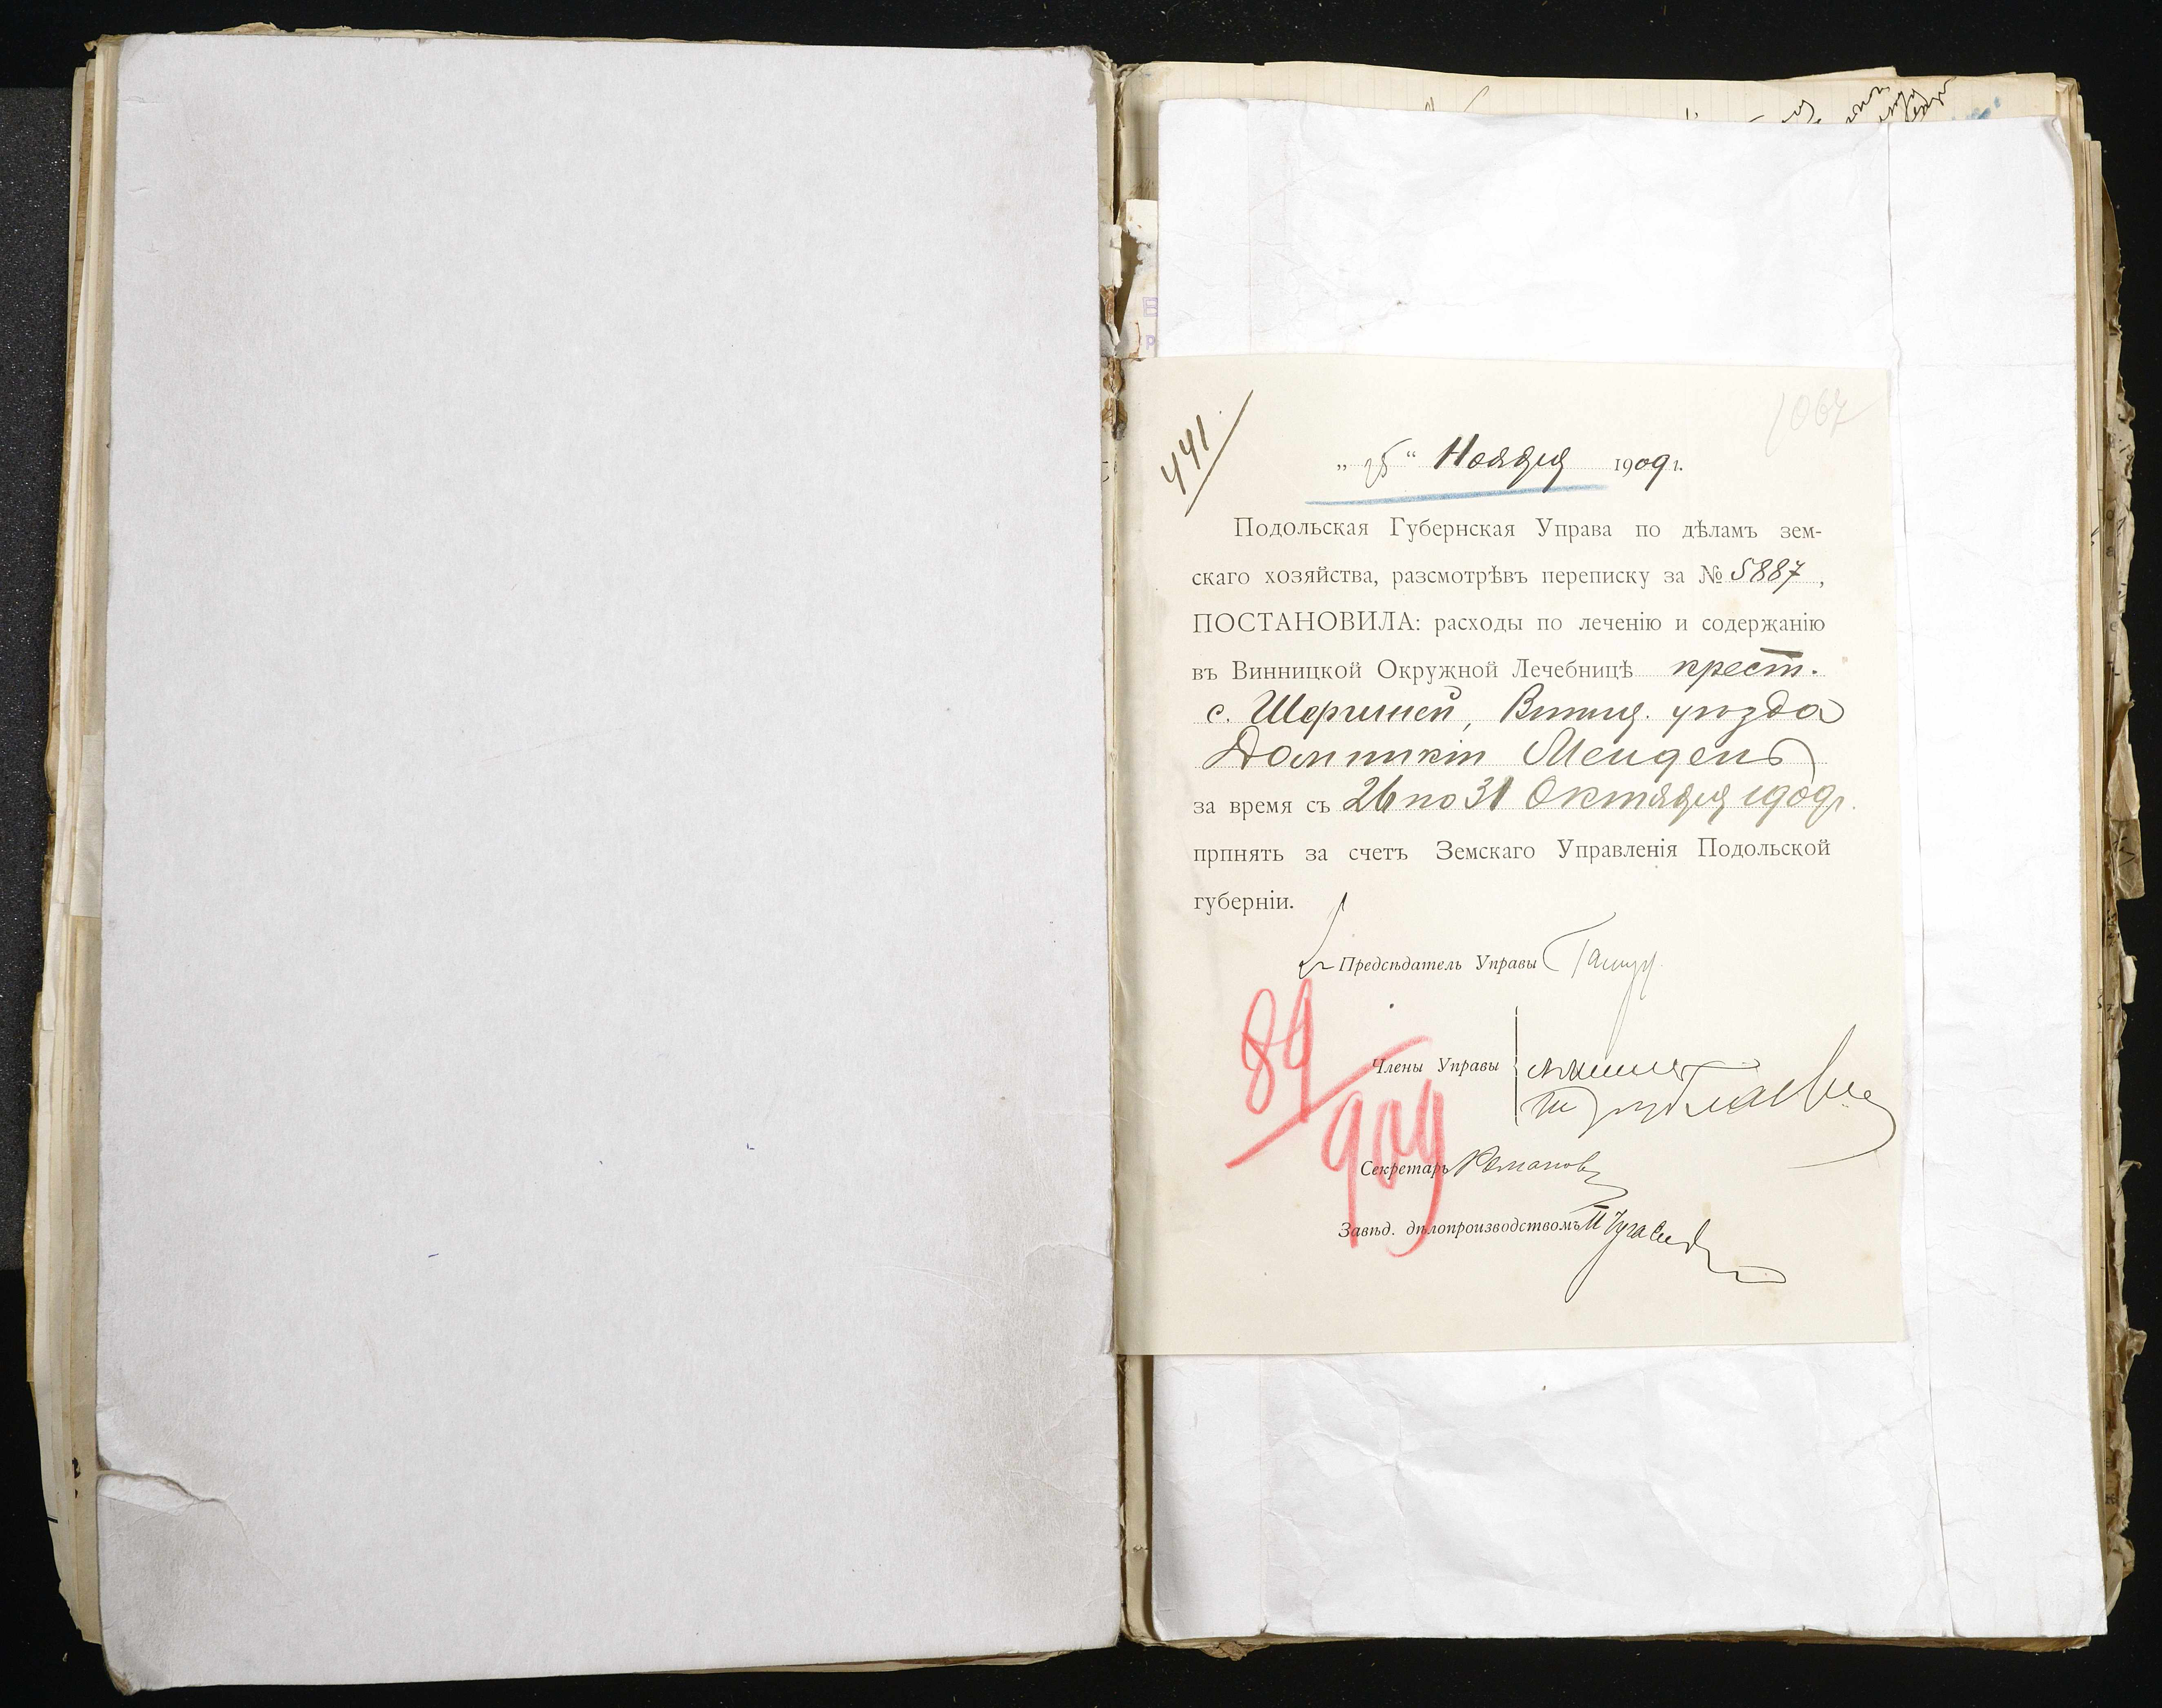 441
1067
" " Ноября 1909 г.
Подольская Губернская Управа по дѣламъ зем-
скаго хозяйства, разсмотрѣвъ переписку за № 5887,
ПОСТАНОВИЛА: расходы по леченію и содержанію
въ Винницкой Окружной Лечебницѣ крест.
с. Шершней, Винниц. уѣзда
Доминикіи
за время съ 26 по 31 Октября 1909 г.
прпнять за счетъ Земскаго Управленія Подольской
губерніи.
Предсѣдатель Управы
Члены Управы
Секретарь Романов
Завѣд. дѣлопроизводствомъ
89/909